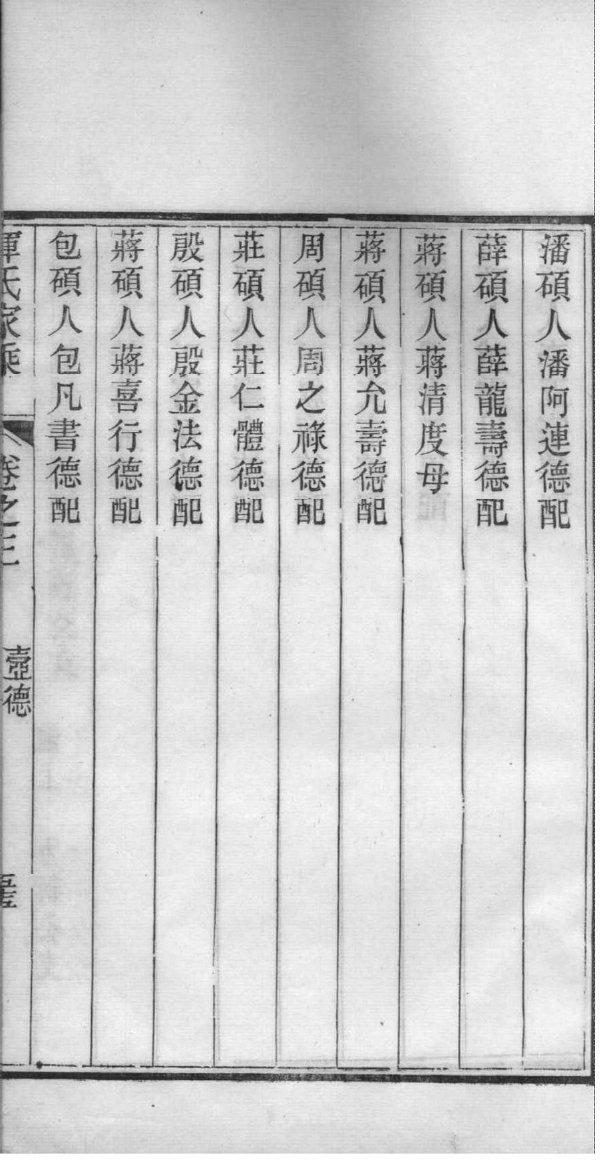 潘碩人潘阿連德配
薛碩人薛龍壽德配
蔣碩人蔣清度母
蔣碩人蔣允壽德配
周碩人周之祿德配
莊碩人莊仁體德配
殷碩人殷金法德配
蔣碩人蔣喜行德配
包碩人包凡書德配
惲氏家乘
卷之三
壼德